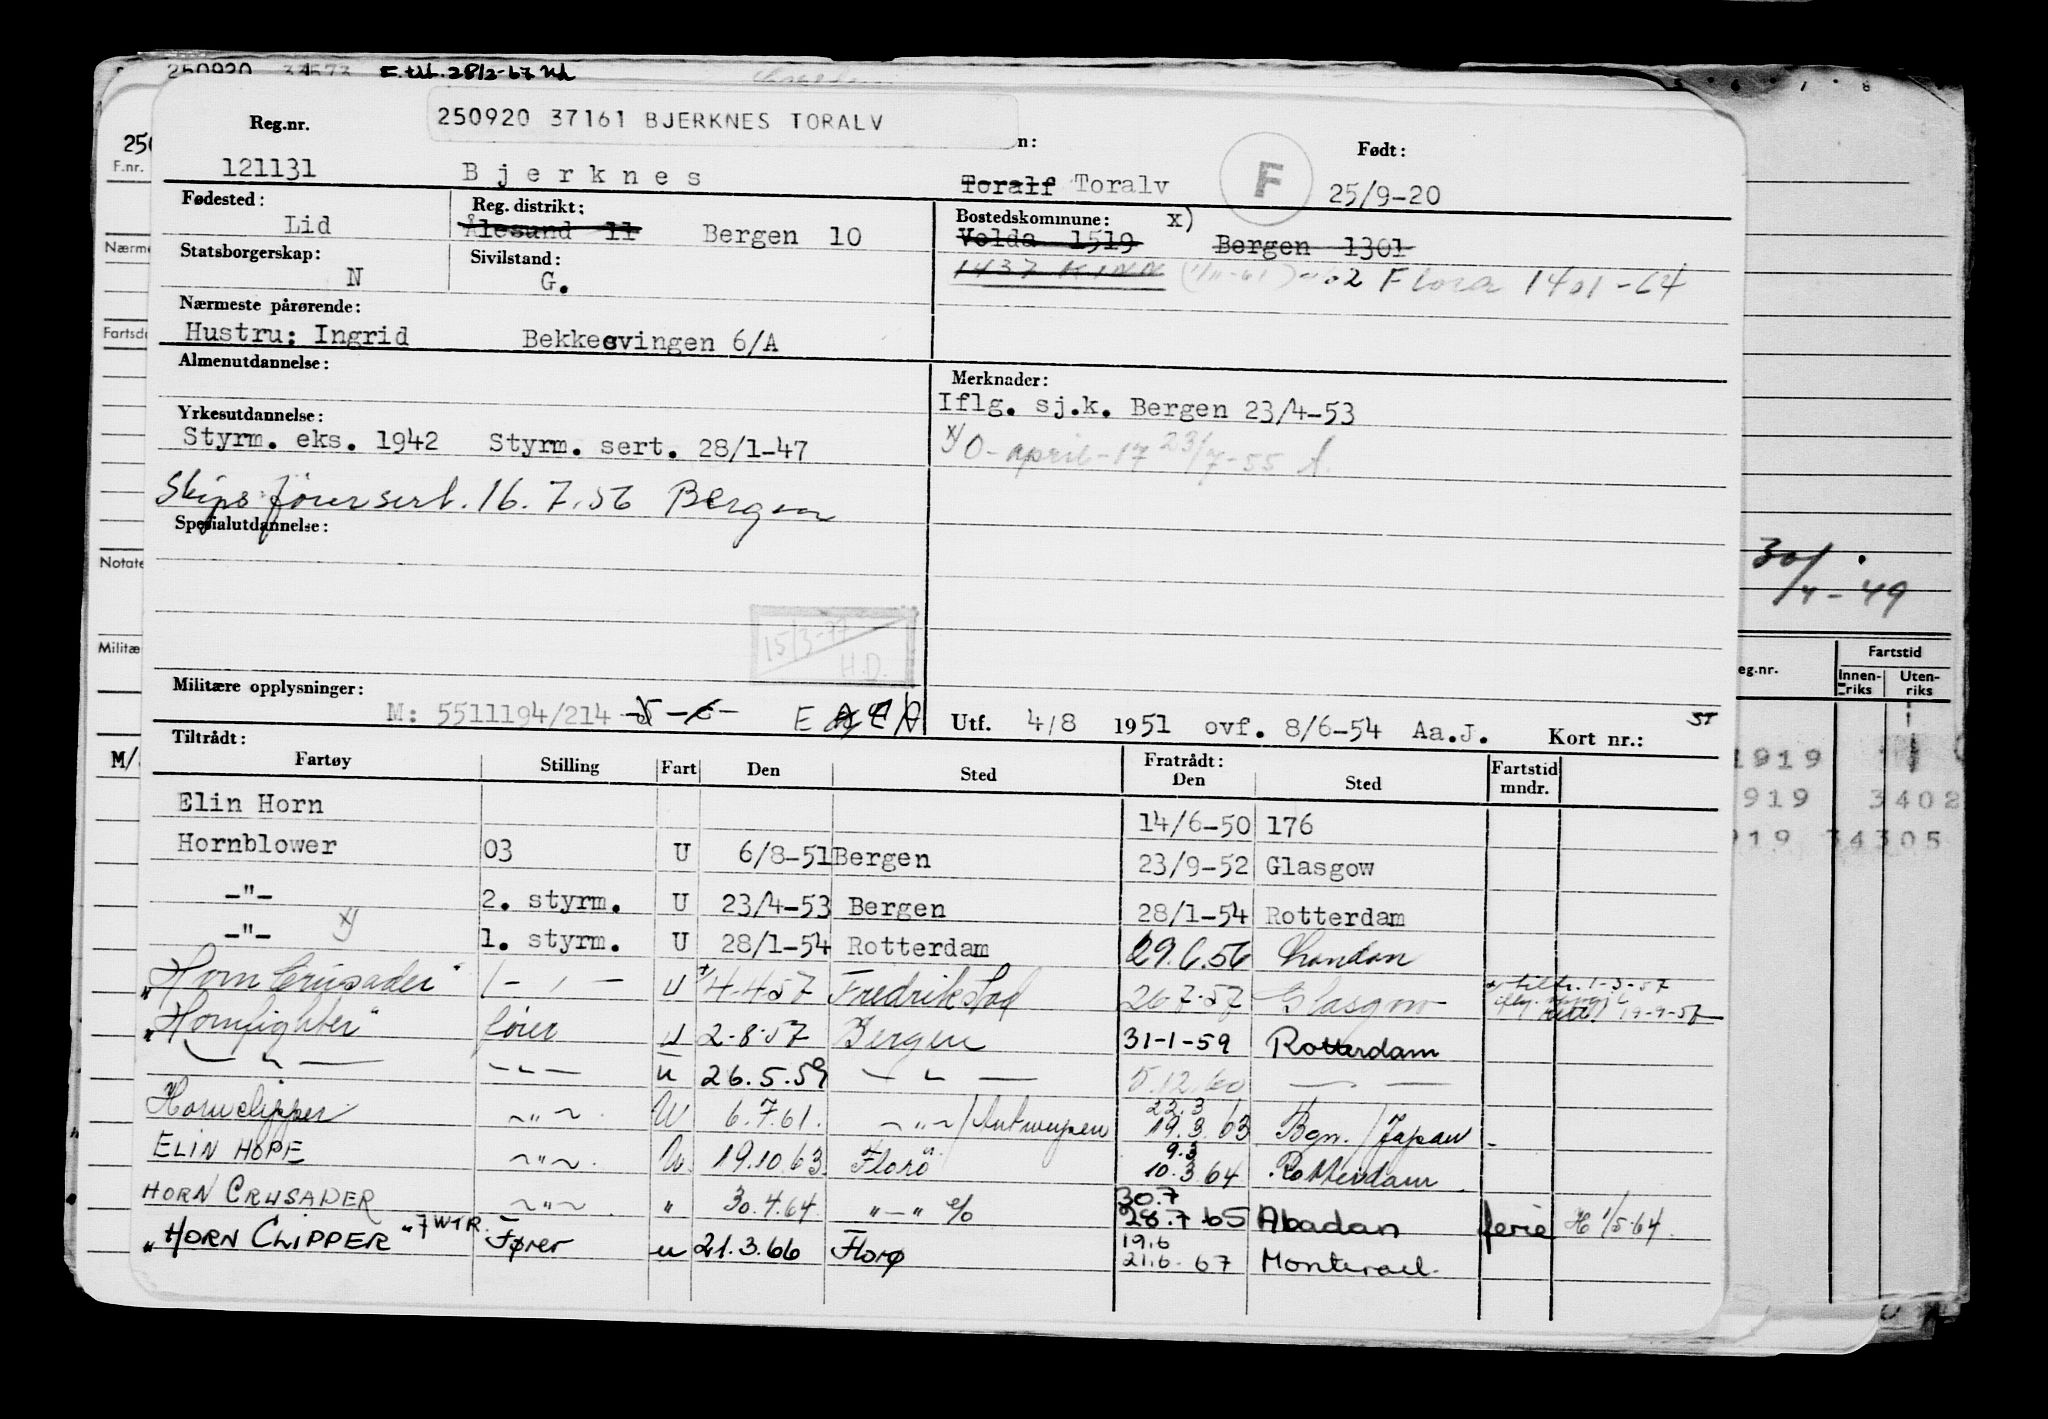 250920 E. till. 28/2-67
250920 37161 BJERKNES TORALV
Reg.nr. n: Født:
121131 Bjerknes Toralf Toralv F 25/9-20
Fødested: Reg. distrikt: Bostedskommune: x)
Lid Ålesund 11 Bergen 10 Volda 1519 Bergen 1301
Statsborgerskap: Sivilstand: 1437 KINN (1/11-61) Flora 1401-64
N G.
Nærmeste pårørende:
Hustru: Ingrid Bekkesvingen 6/A
Almenutdannelse: Merknader:
Iflg. sj.k. Bergen 23/4-53
Yrkesutdannelse:
Styrm. eks. 1942 Styrm. sert. 28/1-47
x) O-april-17 23/7-55
Skipsførersert. 16.7.56 Bergen
Spesialutdannelse:
15/3-77
H.D.
Militære opplysninger:
M: 5511194/214 E
Utf. 4/8 1951 ovf. 8/6-54 Aa.J. Kort nr.:
Tiltrådt: Fratrådt:
Fartøy Stilling Fart Den Sted Den Sted Fartstid mndr.
Elin Horn 14/6-50 176
Hornblower 03 U 6/8-51 Bergen 23/9-52 Glasgow
-"- 2. styrm. U 23/4-53 Bergen 28/1-54 Rotterdam
-"- x) 1. styrm. U 28/1-54 Rotterdam 29.6.56 London
"Horn Crusader" 1 - , - U + 4-4-57 Fredrikstad 26.7.57 Glasgow tiltr. 1-3-57
"Hornfighter" fører U 2-8-57 Bergen 31-1-59 Rotterdam
— " — -"- u 26.5.59 — " — 5.12.60 — " —
Hornclipper ~"~ U 6.7.61. ~"~/Antwerpen 22.3 19.3.63 Bgn./Japan
ELIN HOPE ~"~. U. 19.10.63. Florø 9.3 10.3.64 Rotterdam
HORN CRUSADER ~"~ " 30.4.64. "-" 30.7 28.7.65 Abadan ferie 1/5-64.
"HORN CLIPPER" 7WTR. Fører u 21.3.66 Florø 19.6 21.6.67 Monteral.
250
F.nr.
Nærme
Fartsdo
Notate
Militæ
M/
30/4-49
eg.nr. Fartstid
Innenriks Utenriks
1919
919 3402
919 34305